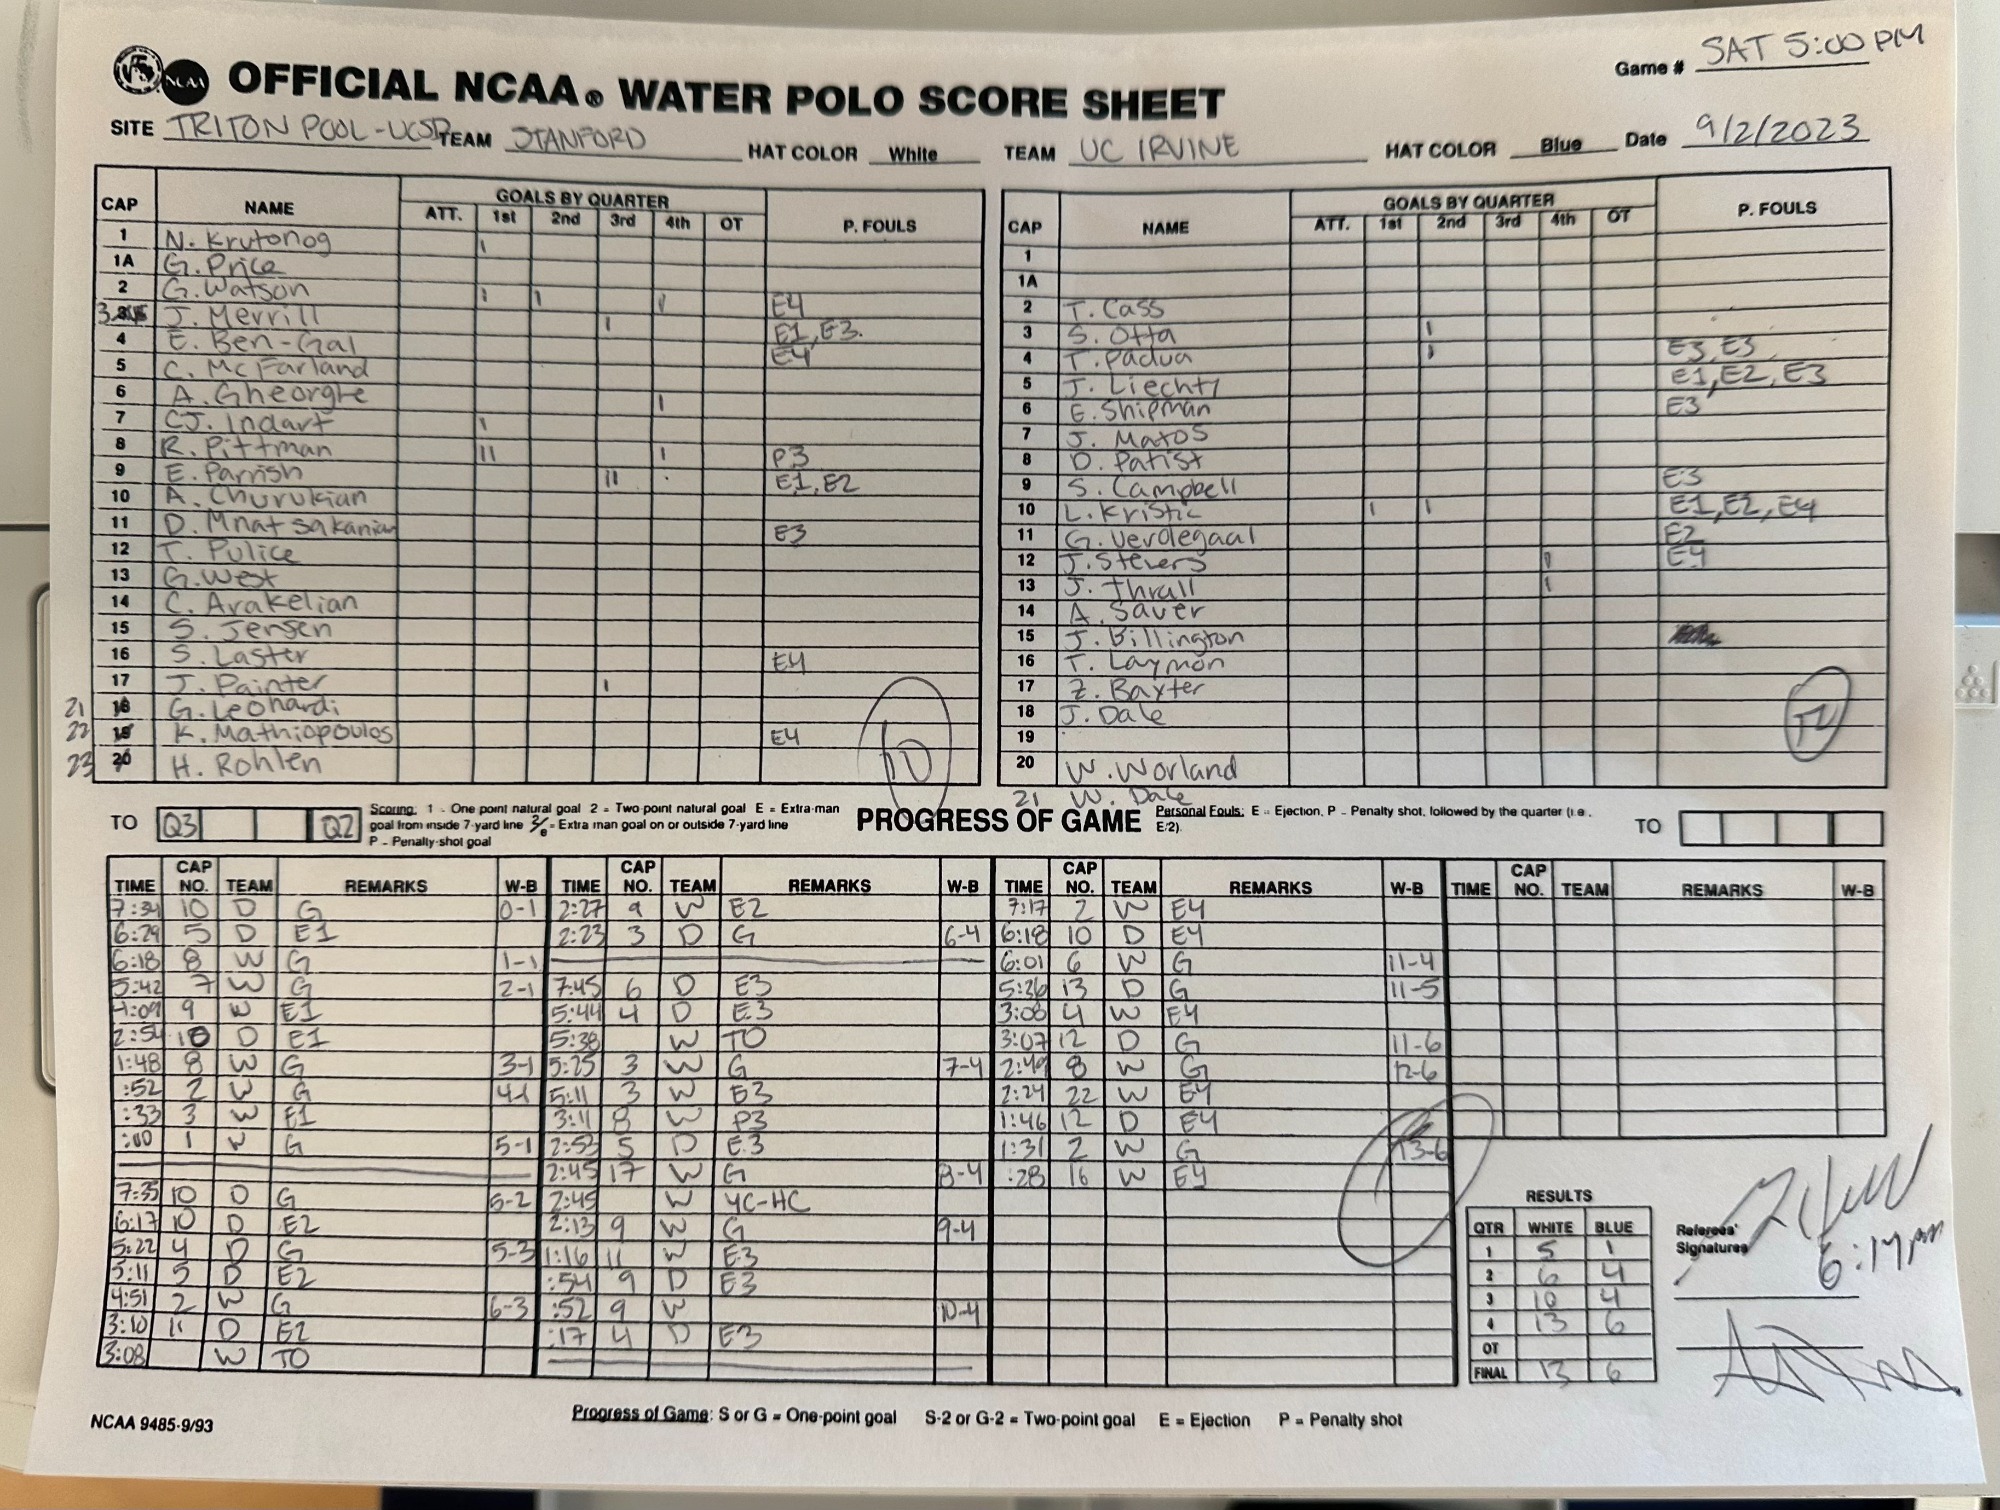 Game # SAT 5:00 PM
NCAA OFFICIAL NCAA® WATER POLO SCORE SHEET
SITE TRITON POOL-UCSD TEAM STANFORD HAT COLOR White TEAM UC IRVINE HAT COLOR Blue Date 9/2/2023
CAP NAME GOALS BY QUARTER P. FOULS
ATT. 1st 2nd 3rd 4th OT
1 N. Krutonog I
1A G. Price
2 G. Watson I I I E4
3 J. Merrill I E1, E3
4 E. Ben-Gal E4
5 C. McFarland
6 A. Gheorghe I
7 CJ. Indart I
8 R. Pittman II I P3
9 E. Parrish II E1, E2
10 A. Churukian
11 D. Mnatsakanian E3
12 T. Pulice
13 G. West
14 C. Arakelian
15 S. Jensen
16 S. Laster E4
17 J. Painter I
21 18 G. Leonardi
22 19 K. Mathiopoulos E4
23 20 H. Rohlen
10
CAP NAME GOALS BY QUARTER P. FOULS
ATT. 1st 2nd 3rd 4th OT
1
1A
2 T. Cass
3 S. Otta I
4 T. Padua I E3, E3
5 J. Liechty E1, E2, E3
6 E. Shipman E3
7 J. Matos
8 D. Patist
9 S. Campbell E3
10 L. Kristic I I E1, E2, E4
11 G. Verdegaal E2
12 J. Stevers I E4
13 J. Thrall I
14 A. Sauer
15 J. Billington
16 T. Laymon
17 Z. Baxter
18 J. Dale
19
20 W. Worland
21 W. Dale
12
TO Q3 Q2 Scoring: 1 - One point natural goal 2 = Two-point natural goal E = Extra-man
goal from inside 7-yard line 2/e = Extra man goal on or outside 7-yard line
P - Penalty-shot goal
PROGRESS OF GAME
Personal Fouls: E = Ejection, P - Penalty shot, followed by the quarter (i.e.,
E/2). TO
TIME CAP NO. TEAM REMARKS W-B
7:34 10 D G 0-1
6:29 5 D E1
6:18 8 W G 1-1
5:42 7 W G 2-1
4:09 9 W E1
2:54 10 D E1
1:48 8 W G 3-1
:52 2 W G 4-1
:33 3 W E1
:00 1 W G 5-1
7:35 10 D G 5-2
6:17 10 D E2
5:22 4 D G 5-3
5:11 5 D E2
4:51 2 W G 6-3
3:10 11 D E2
3:08 W TO
TIME CAP NO. TEAM REMARKS W-B
2:27 9 W E2
2:23 3 D G 6-4
7:45 6 D E3
5:44 4 D E3
5:38 W TO
5:25 3 W G 7-4
5:11 3 W E3
3:11 8 W P3
2:53 5 D E3
2:45 17 W G 8-4
2:45 W YC-HC
2:13 9 W G 9-4
1:16 11 W E3
:54 9 D E3
:52 9 W 10-4
:17 4 D E3
TIME CAP NO. TEAM REMARKS W-B
7:17 2 W E4
6:18 10 D E4
6:01 6 W G 11-4
5:36 13 D G 11-5
3:08 4 W E4
3:07 12 D G 11-6
2:49 8 W G 12-6
2:24 22 W E4
1:46 12 D E4
1:31 2 W G 13-6
:28 16 W E4
TIME CAP NO. TEAM REMARKS W-B
RESULTS
QTR WHITE BLUE
1 5 1
2 6 4
3 10 4
4 13 6
OT
FINAL 13 6
Referees'
Signatures
6:17pm
NCAA 9485-9/93
Progress of Game: S or G = One-point goal S-2 or G-2 = Two-point goal E = Ejection P = Penalty shot